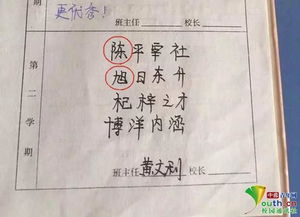 期
更优秀！
班主任 校长
第二学期
陈平宰社
旭日东升
杞梓之才
博洋内涵
班主任 黄文利 校长
中国青年网
youth.cn
校园通讯社